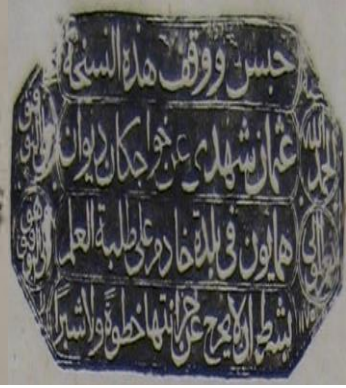 حبس ووقف هذه النسخة
الحمد لله
عثمان شهدى عن خواجكان ديوان
همايون فى بلدة على طلبة العلم
بشرط ان لا يخرج عن خزانتها خطوة ولا شبرا